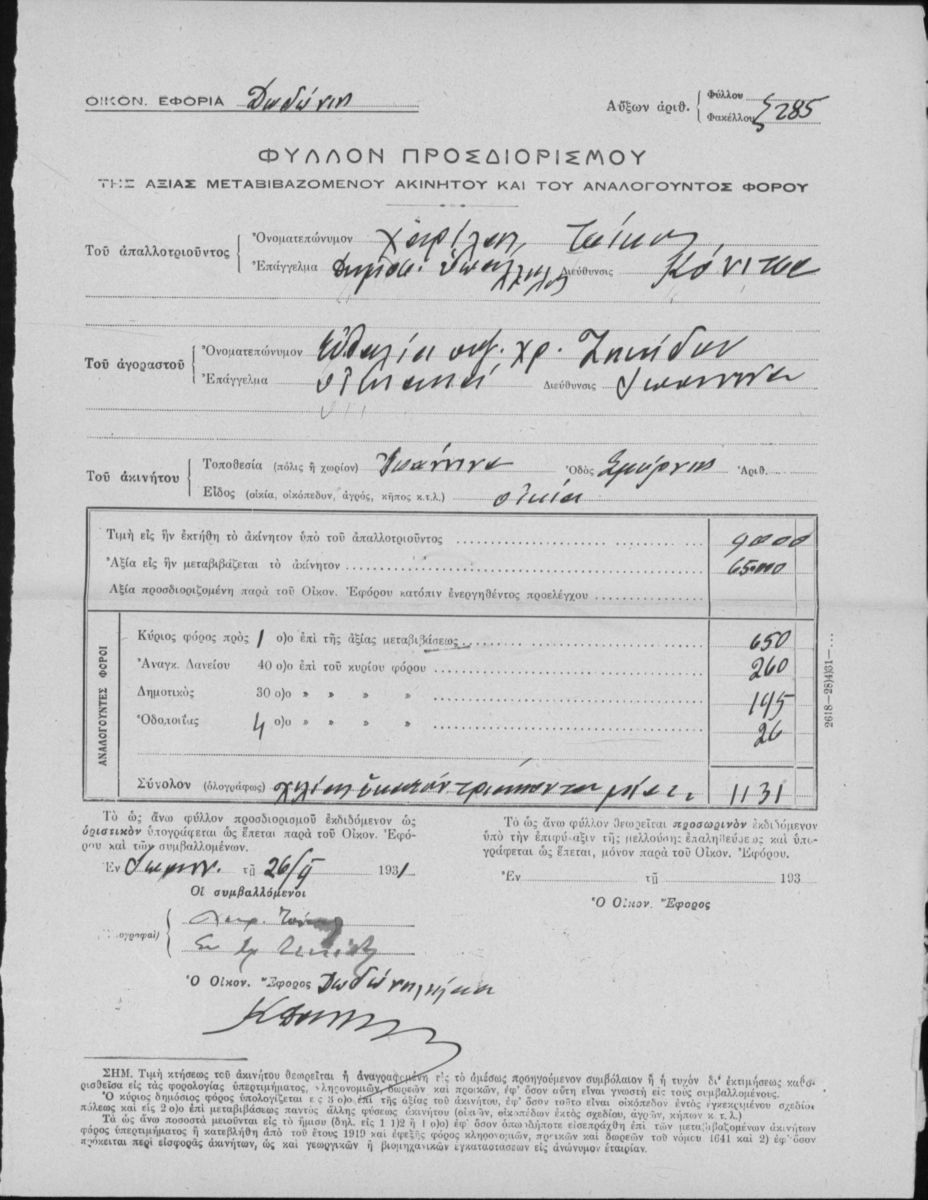 ΟΙΚΟΝ. ΕΦΟΡΙΑ Δωδώνης
Αὔξων ἀριθ. Φύλλου
Φακέλλου 285
ΦΥΛΛΟΝ ΠΡΟΣΔΙΟΡΙΣΜΟΥ
ΤΗΣ ΑΞΙΑΣ ΜΕΤΑΒΙΒΑΖΟΜΕΝΟΥ ΑΚΙΝΗΤΟΥ ΚΑΙ ΤΟΥ ΑΝΑΛΟΓΟΥΝΤΟΣ ΦΟΡΟΥ
Τοῦ ἀπαλλοτριοῦντος
Ὀνοματεπώνυμον
Ἐπάγγελμα Δημόσ. ὑπάλληλος Διεύθυνσις Κόνιτσα
Τοῦ ἀγοραστοῦ
Ὀνοματεπώνυμον Εὐθαλία συζ. Χρ.
Ἐπάγγελμα οἰκιακά Διεύθυνσις Ἰωάννινα
Τοῦ ἀκινήτου
Τοποθεσία (πόλις ἢ χωρίον) Ἰωάννινα Ὁδὸς Σμύρνης Ἀριθ.
Εἶδος (οἰκία, οἰκόπεδον, ἀγρός, κῆπος κ.τ.λ.) οἰκία
Τιμὴ εἰς ἣν ἐκτήθη τὸ ἀκίνητον ὑπὸ τοῦ ἀπαλλοτριοῦντος 9000
Ἀξία εἰς ἣν μεταβιβάζεται τὸ ἀκίνητον 65000
Ἀξία προσδιοριζομένη παρὰ τοῦ Οἰκον. Ἐφόρου κατόπιν ἐνεργηθέντος προελέγχου
ΑΝΑΛΟΓΟΥΝΤΕΣ ΦΟΡΟΙ
Κύριος φόρος πρὸς 1 ο)ο ἐπὶ τῆς ἀξίας μεταβιβάσεως 650
Ἀναγκ. Δανείου 40 ο)ο ἐπὶ τοῦ κυρίου φόρου 260
Δημοτικὸς 30 ο)ο » » » » 195
Ὁδοποιΐας 4 ο)ο » » » » 26
Σύνολον (ὁλογράφως) χίλιαι ἑκατὸν τριάκοντα μία 1131
2618—28)4)31—...
Τὸ ὡς ἄνω φύλλον προσδιορισμοῦ ἐκδιδόμενον ὡς
ὁριστικὸν ὑπογράφεται ὡς ἕπεται παρὰ τοῦ Οἰκον. Ἐφό-
ρου καὶ τῶν συμβαλλομένων.
Ἐν Ἰωανν. τῇ 26/5 1931
Οἱ συμβαλλόμενοι
Ὁ Οἰκον. Ἔφορος
Τὸ ὡς ἄνω φύλλον θεωρεῖται προσωρινὸν ἐκδιδόμενον
ὑπὸ τὴν ἐπιφύλαξιν τῆς μελλούσης ἐπαληθεύσεως καὶ ὑπο-
γράφεται ὡς ἕπεται, μόνον παρὰ τοῦ Οἰκον. Ἐφόρου.
Ἐν τῇ 193
Ὁ Οἰκον. Ἔφορος
ΣΗΜ. Τιμὴ κτήσεως τοῦ ἀκινήτου θεωρεῖται ἡ ἀναγραφομένη εἰς τὸ ἀμέσως προηγούμενον συμβόλαιον ἢ ἡ τυχὸν δι' ἐκτιμήσεως καθο-
ρισθεῖσα εἰς τὰς φορολογίας ὑπερτιμήματος, κληρονομιῶν, δωρεῶν καὶ προικῶν, ἐφ' ὅσον αὕτη εἶναι γνωστὴ εἰς τοὺς συμβαλλομένους.
Ὁ κύριος δημόσιος φόρος ὑπολογίζεται εἰς 3 ο)ο ἐπὶ τῆς ἀξίας τοῦ ἀκινήτου, ἐφ' ὅσον τοῦτο εἶναι οἰκόπεδον ἐντὸς ἐγκεκριμένου σχεδίου
πόλεως καὶ εἰς 2 ο)ο ἐπὶ μεταβιβάσεως παντὸς ἄλλης φύσεως ἀκινήτου (οἰκιῶν, οἰκοπέδων ἐκτὸς σχεδίου, ἀγρῶν, κήπων κ τ.λ.)
Τὰ ὡς ἄνω ποσοστὰ μειοῦνται εἰς τὸ ἥμισυ (δηλ. εἰς 1 1)2 ἢ 1 ο)ο) ἐφ' ὅσον ὁπωσδήποτε εἰσεπράχθη ἐπὶ τῶν μεταβιβαζομένων ἀκινήτων
φόρος ὑπερτιμήματος ἢ κατεβλήθη ἀπὸ τοῦ ἔτους 1919 καὶ ἐφεξῆς φόρος κληρονομιῶν, προικῶν καὶ δωρεῶν τοῦ νόμου 1641 καὶ 2) ἐφ' ὅσον
πρόκειται περὶ εἰσφορᾶς ἀκινήτων, ὡς καὶ γεωργικῶν ἢ βιομηχανικῶν ἐγκαταστάσεων εἰς ἀνώνυμον ἑταιρίαν.